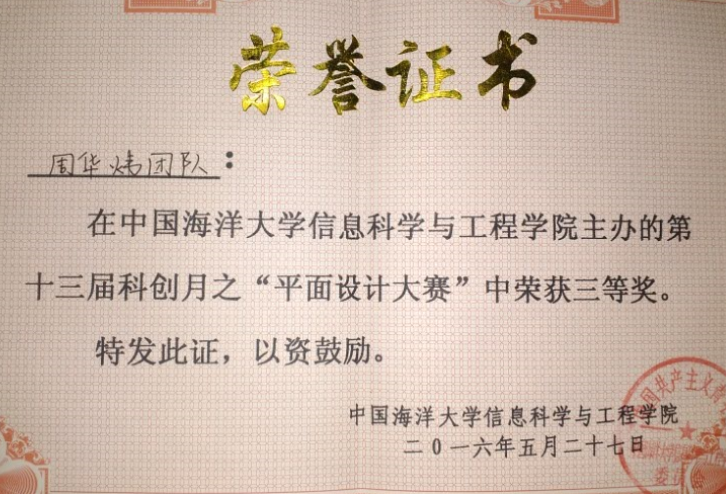 荣誉证书
周华炜团队：
在中国海洋大学信息科学与工程学院主办的第
十三届科创月之“平面设计大赛”中荣获三等奖。
特发此证，以资鼓励。
中国海洋大学信息科学与工程学院
二0一六年五月二十七日
国共产主义青
委员会